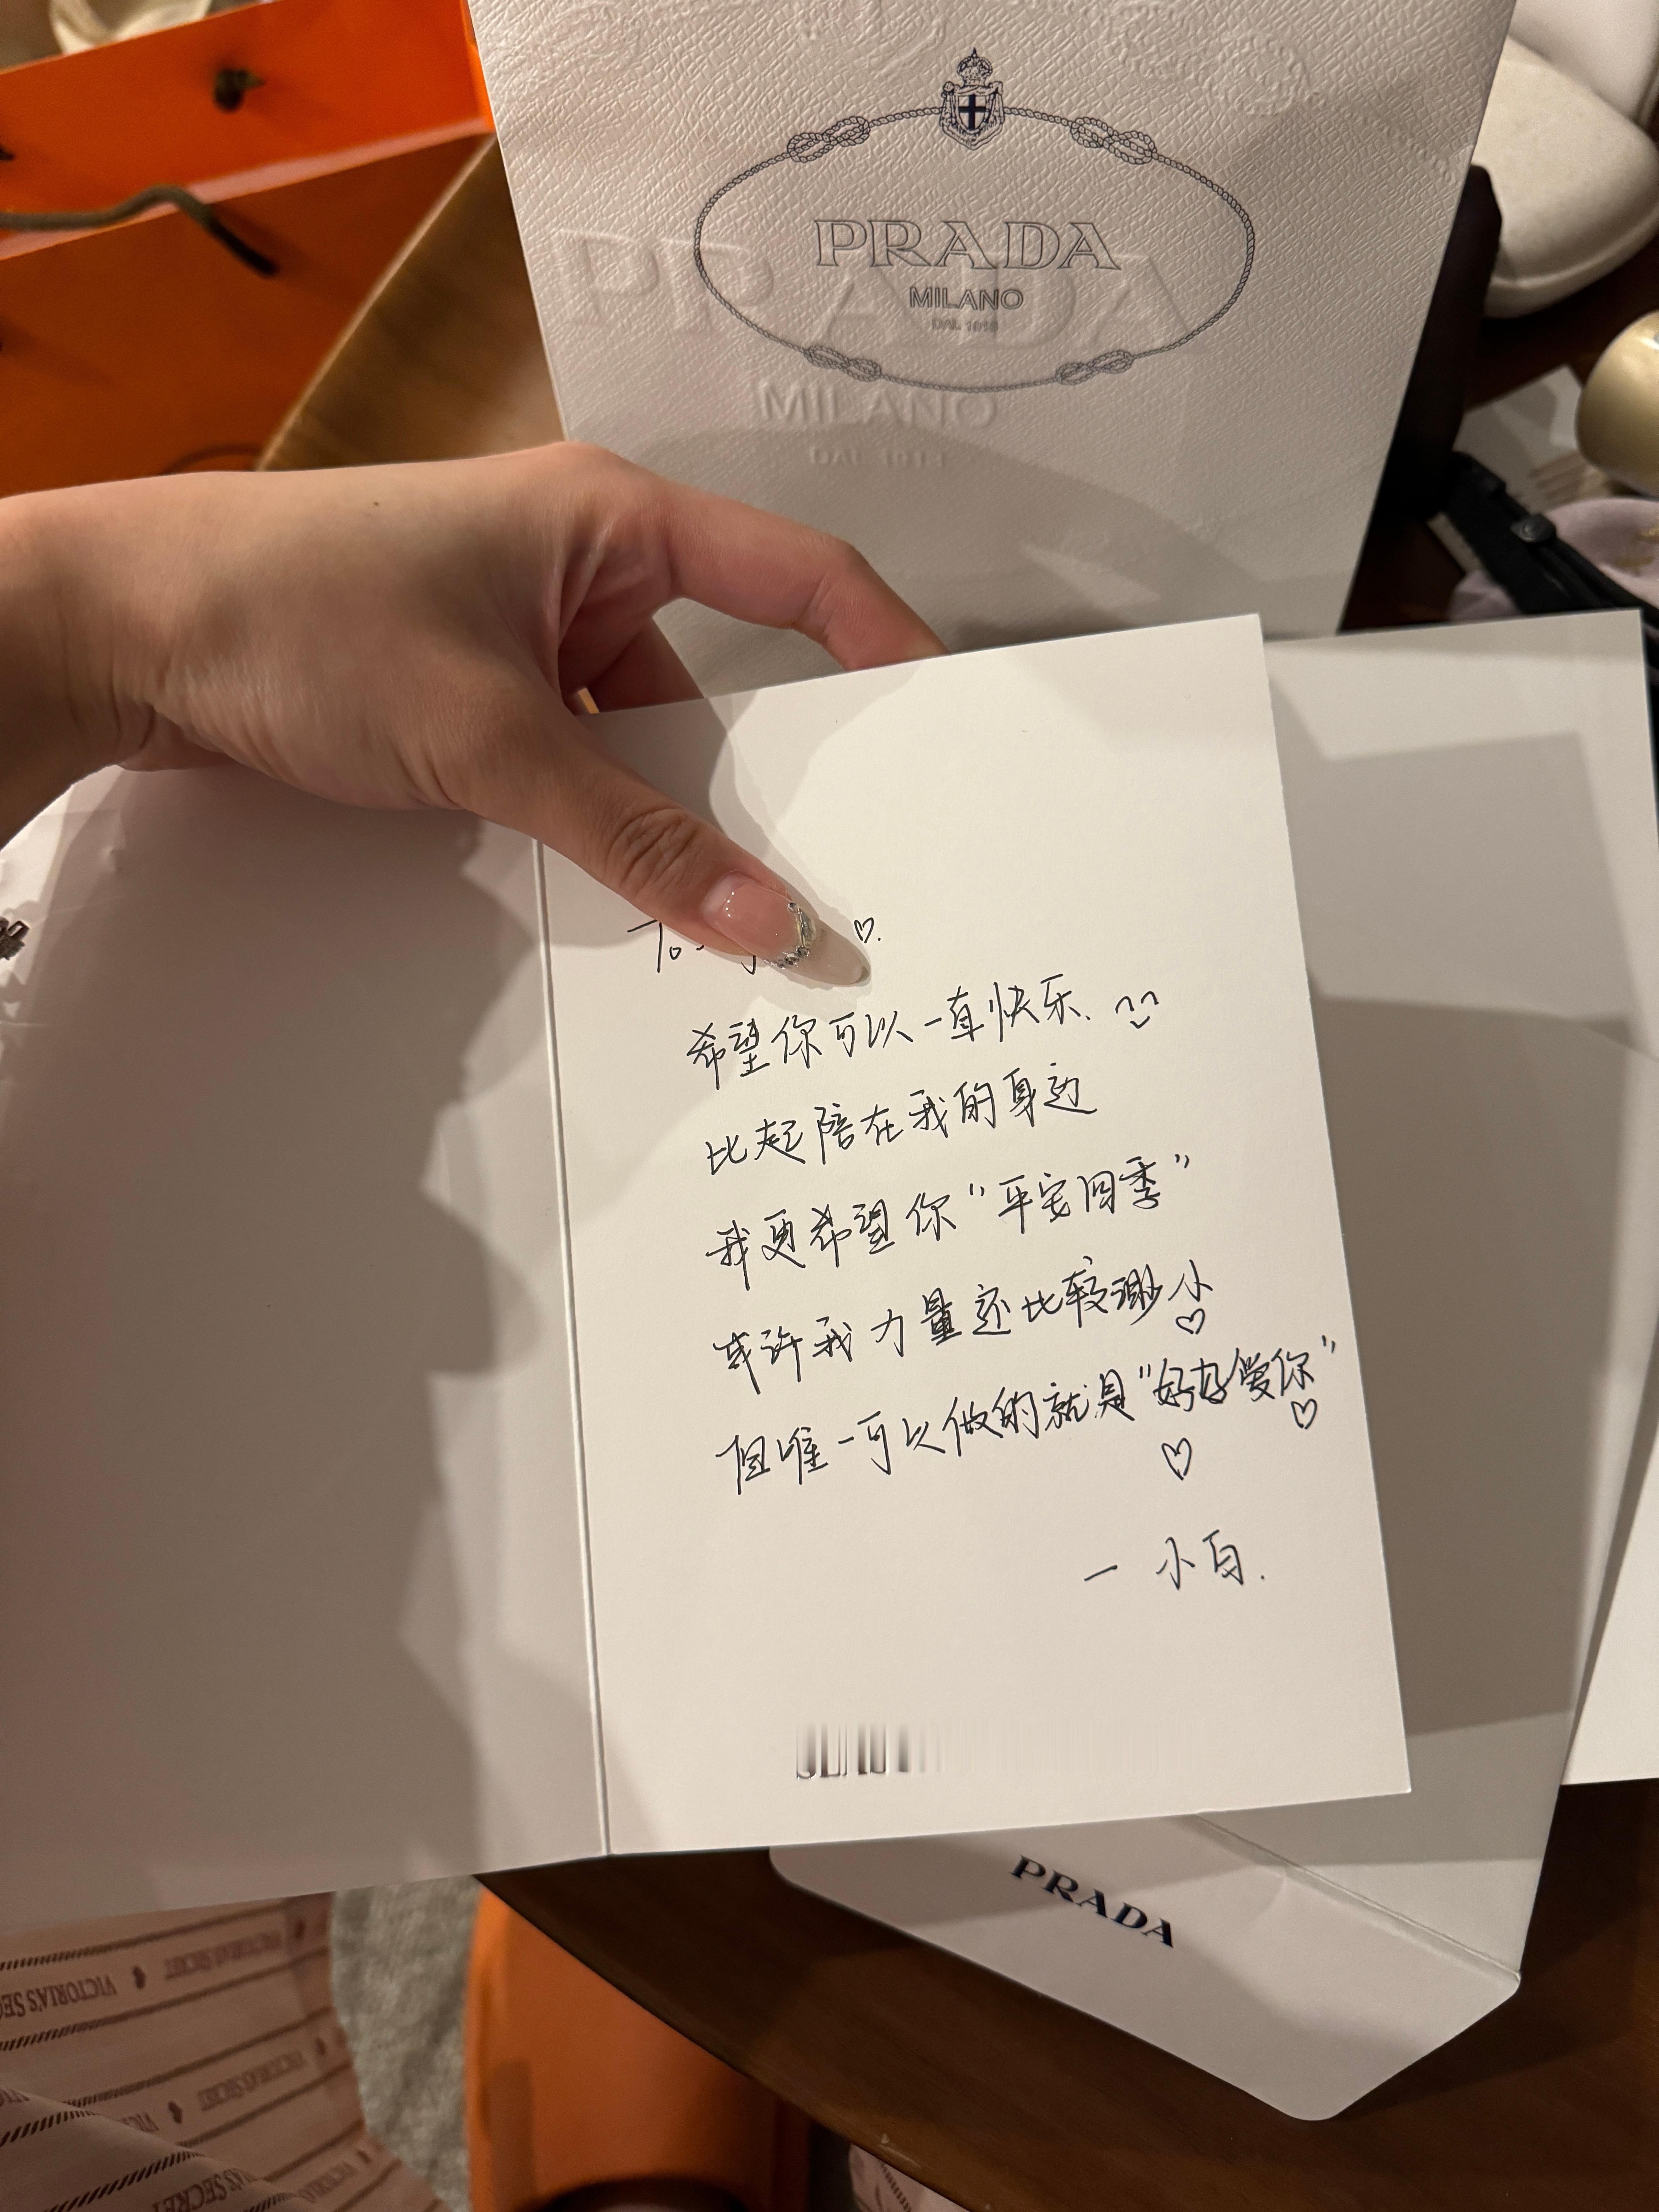 PRADA
MILANO
DAL 1913
PRADA
MILANO
DAL 1913
To
♡.
希望你可以一直快乐.
比起陪在我的身边
我更希望你“平安四季”
或许我力量还比较渺小
♡
但唯一可以做的就是“好好爱你”
♡ ♡
— 小白.
PRADA
VICTORIA'S SECRET
VICTORIA'S SEC
VICTORIA'S SECRET